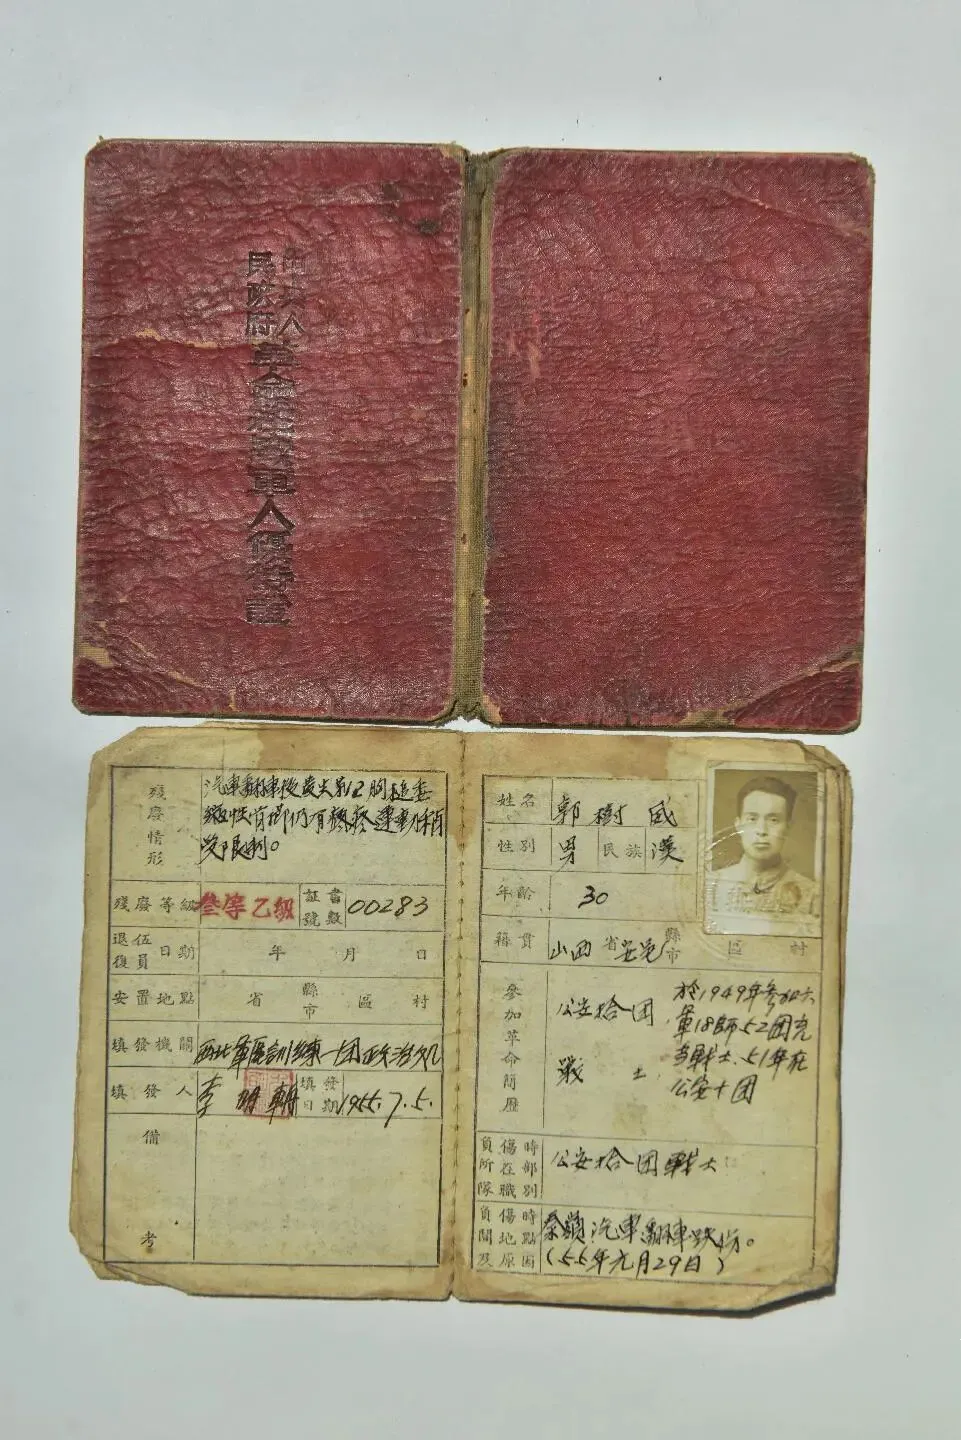 中央人
民政府
革命殘廢軍人優待證
殘廢情形
汽車翻車後裂尖第12胸椎委
縮性骨折仍有疼
受限制。
殘廢等級
叁等乙級
証書號數
00283
退伍復員日期
年 月 日
安置地點
省 縣市 區 村
填發機關
西北軍區訓練一团政治処
填發人
李明朝
填發日期
1955.7.5.
備考
姓名
郭樹成
性別
男
民族
漢
年齡
30
籍貫
山西省安邑縣市 區 村
參加革命簡歷
公安拾团
戰士
於1949年参加六
軍18師52团充
当戰士.51年在
公安十团
負傷時所在部隊職別
公安拾团戰士
負傷時間地點及原因
秦嶺汽車翻車跌伤。
(55年元月29日)